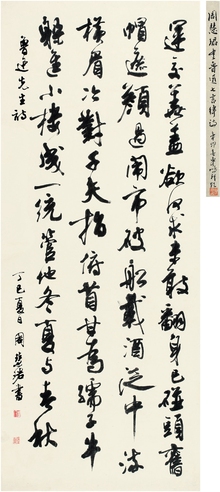 運交華盖欲何求未敢翻身已碰頭舊
帽遮顏過闹市破船載酒泛中流
横眉冷對千夫指俯首甘为孺子牛
躲進小樓成一統管他冬夏与春秋
魯迅先生詩
丁巳夏日周慧珺書
周慧珺書魯迅七言律詩